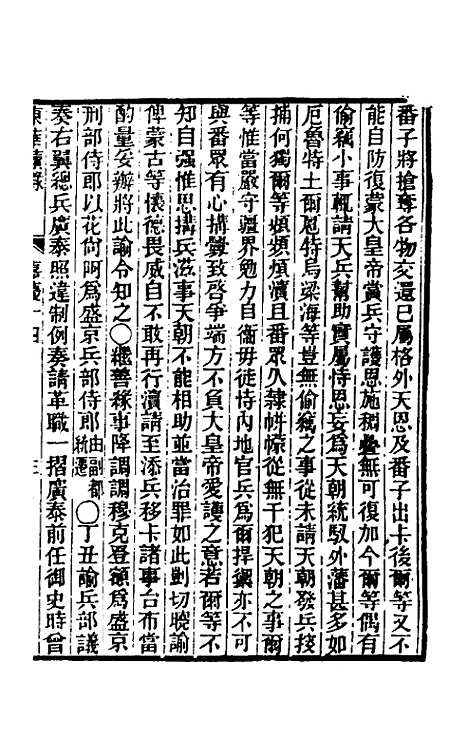 番子將搶奪各物交還已屬格外天恩及番子出卡後爾等又不
能自防復蒙大皇帝賞兵守護恩施稠疊無可復加今爾等偶有
偷竊小事輒請天兵幫助實屬恃恩妄爲天朝統馭外藩甚多如
厄魯特土爾扈特烏梁海等豈無偷竊之事從未請天朝發兵搜
捕何獨爾等煩頻煩瀆且番眾久隸帡幪從無干犯天朝之事爾
等惟當嚴守疆界勉力自衞毋徒恃內地官兵爲爾捍禦亦不可
與番眾有心搆釁致啓爭端方不負大皇帝愛護之意若爾等不
知自强惟思搆兵滋事天朝不能相助並當治罪如此剴切曉諭
俾蒙古等懷德畏威自不敢再行瀆請至添兵移卡諸事台布當
酌量妥辦將此諭令知之○繼善緣事降調調穆克登額爲盛京
刑部侍郎以花尙阿爲盛京兵部侍郎由副都統遷○丁丑諭兵部議
奏右翼總兵廣泰照違制例奏請革職一摺廣泰前任御史時曾
東華續錄 嘉慶十四 三